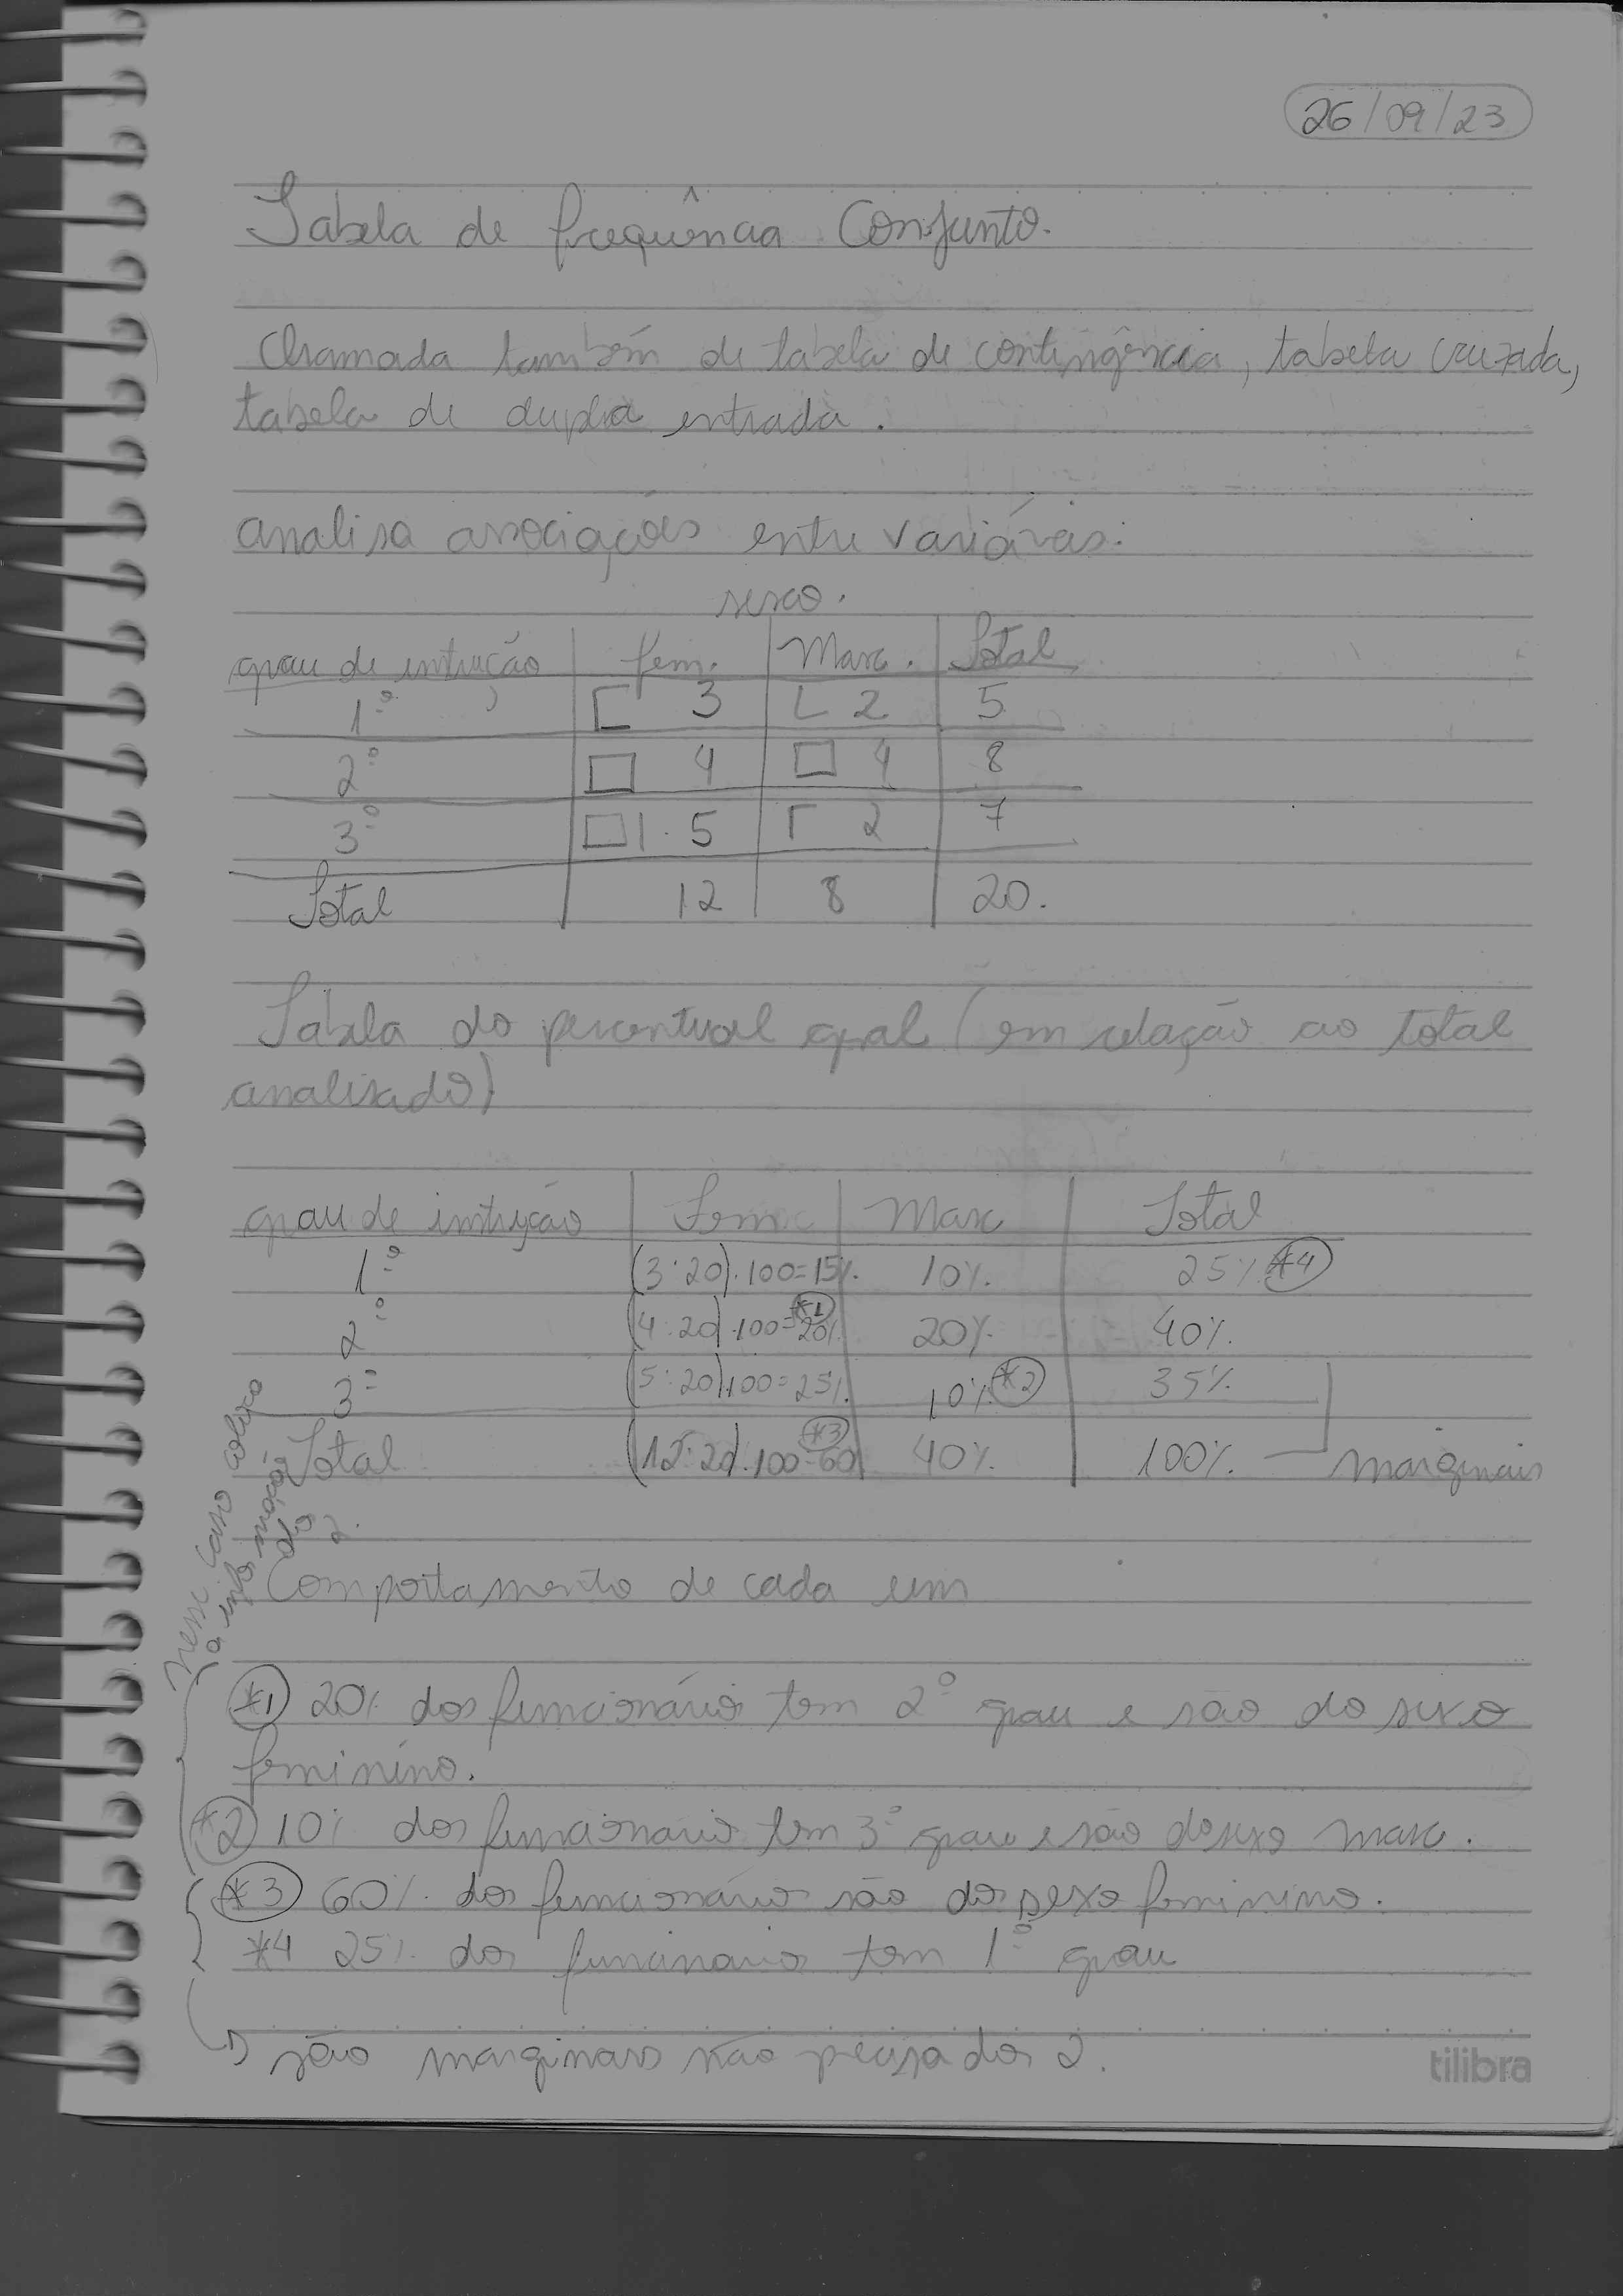 26/09/23
Tabela de frequência Conjunto.
Chamada também de tabela de contingência, tabela cruzada,
tabela de dupla entrada.
analisa associações entre variáveis:
sexo.
grau de intrução fem. Masc. Total
1º 3 2 5
2º 4 4 8
3º 5 2 7
Total 12 8 20.
Tabela do percentual geral (em relação ao total
analisado)
grau de intrução Fem Masc Total
1º (3:20).100=15% 10% 25% *4
2º (4:20).100=20% *1 20% 40%
3º (5:20).100=25% 10% *2 35%
Total (12:20).100=60 *3 40% 100% marginais
nesse caso coloco
a informação
do
2.
Comportamento de cada um
*1 20% dos funcionários tem 2º grau e são do sexo
feminino.
*2 10% dos funcionario tem 3º grau e são do sexo masc.
*3 60% dos funcionários são do sexo feminino.
*4 25% dos funcionarios tem 1º grau
são marginais não precisa dos 2.
tilibra